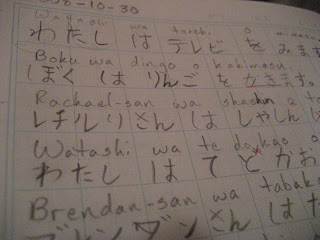 008-10-30
Watashi wa terebi o mimasu
わたし は テレビ を みます
Boku wa dingo o kakimasu.
ぼく は りんご を かきます。
Rachael-san wa shashin o to
レチルリさん は しゃしん
Watashi wa te do kao o
わたし は て と かお
Brendan-san wa tabako
ブレンダンさん は た